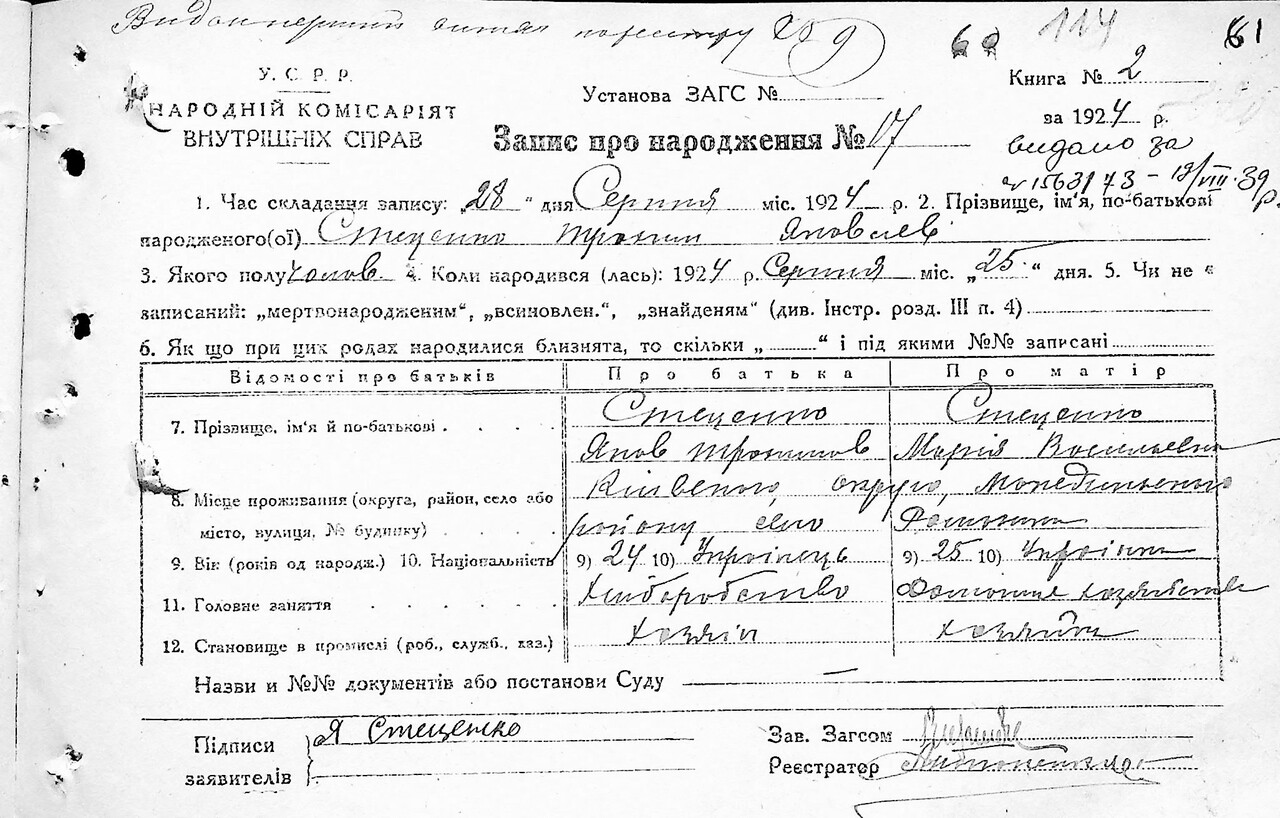 витяг по реєстру № 9
60 114 61
У. С. Р. Р.
НАРОДНІЙ КОМІСАРІЯТ
ВНУТРІШНІХ СПРАВ
Установа ЗАГС №
Книга № 2
за 1924 р.
Запис про народження № 17
видано за
№ 156373 – 19/VIII 39 р.
1. Час складання запису: „28“ дня Серпня міс. 1924 р. 2. Прізвище, ім'я, по-батькові
народженого(ої) Стеценко Трохим Яковлев
3. Якого полу чолов. 4. Коли народився (лась): 1924 р. Серпня міс. „25“ дня. 5. Чи не є
записаний: „мертвонародженим“, „всиновлен.“, „знайденям“ (див. Інстр. розд. III п. 4)
6. Як що при цих родах народилися близнята, то скільки „ “ і під якими №№ записані
Відомості про батьків Про батька Про матір
7. Прізвище, ім'я й по-батькові Стеценко Стеценко
Яков Трохимов Марія Васильевна
8. Місце проживання (округа, район, село або Київского округа,
місто, вулиця, № будинку) району село
9. Вік (років од народж.) 10. Національність 9) 24 10) Українець 9) 25 10) Українка
11. Головне заняття Хліборобство Домашне хозяйство
12. Становище в промислі (роб., служб., хаз.) хозяін хозяйка
Назви и №№ документів або постанови Суду —
Підписи Я Стеценко
заявителів
Зав. Загсом
Реєстратор